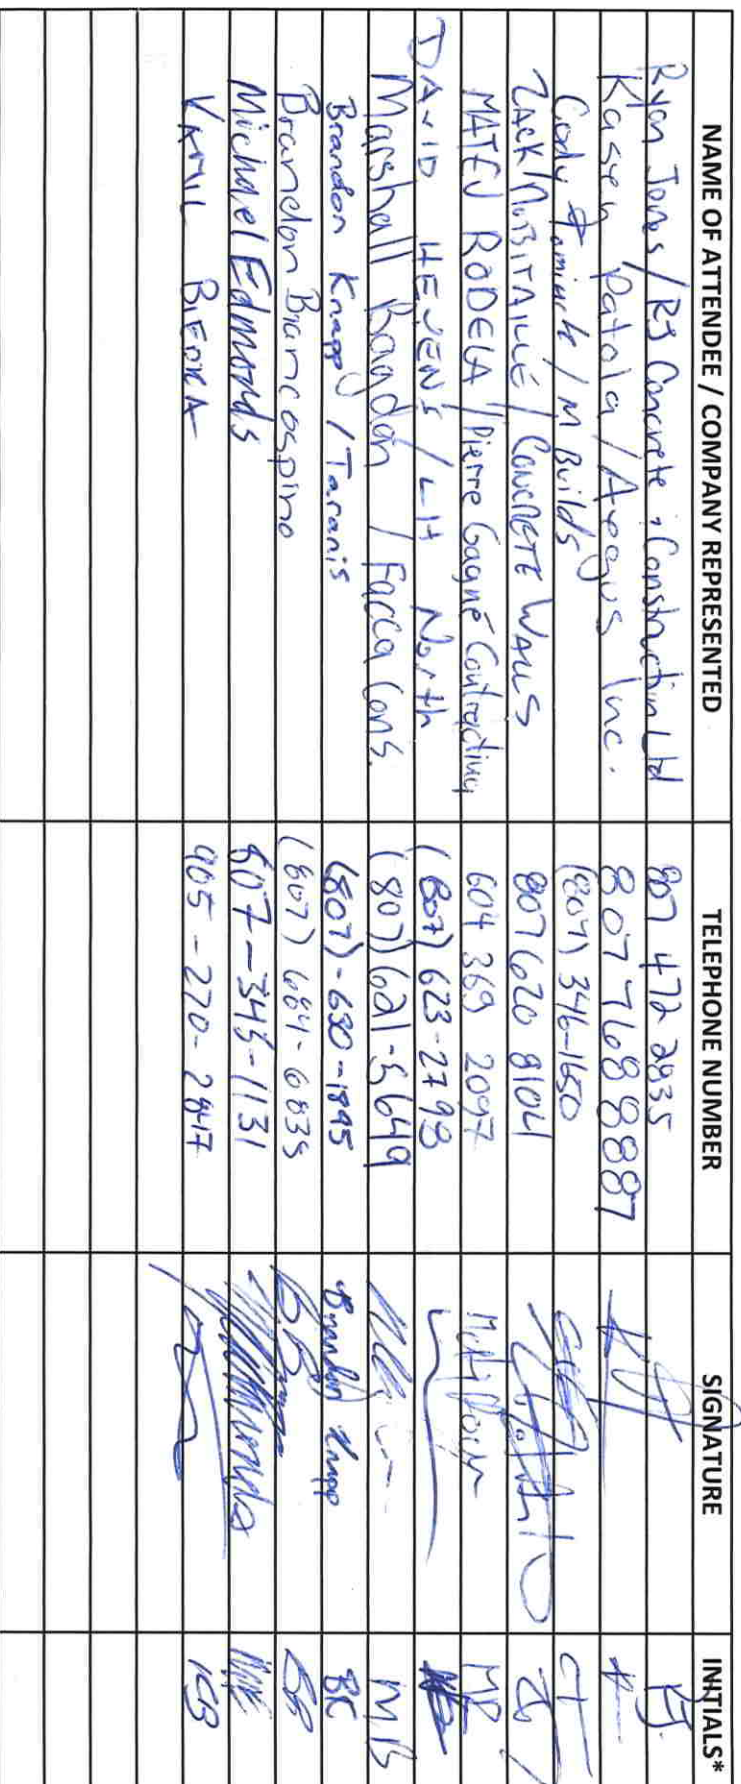 NAME OF ATTENDEE / COMPANY REPRESENTED TELEPHONE NUMBER SIGNATURE INITIALS*
Ryan Jones / RJ Concrete & Construction Ltd 807 472 2835 RJ.
Kasey Patola / Argus Inc. 807 768 8887
Cody / M Builds (807) 346-1650 CT
ZACK / CONCRETE WALLS 807 620 8104
MATEJ RODELA / Pierre Gagné Contracting 604 369 2097 MR
DAVID / LH North (807) 623-2798
Marshall Bagdon / Facca Cons. (807) 621-5649 MB
Brandon Knapp / Taranis (807)-630-1895 Brandon Knapp BK
Brandon Biancospino (807) 684-6835 BB
Michael Edmonds 807-345-1131 ME
KAMIL BIEDKA 905-270-2847 KB